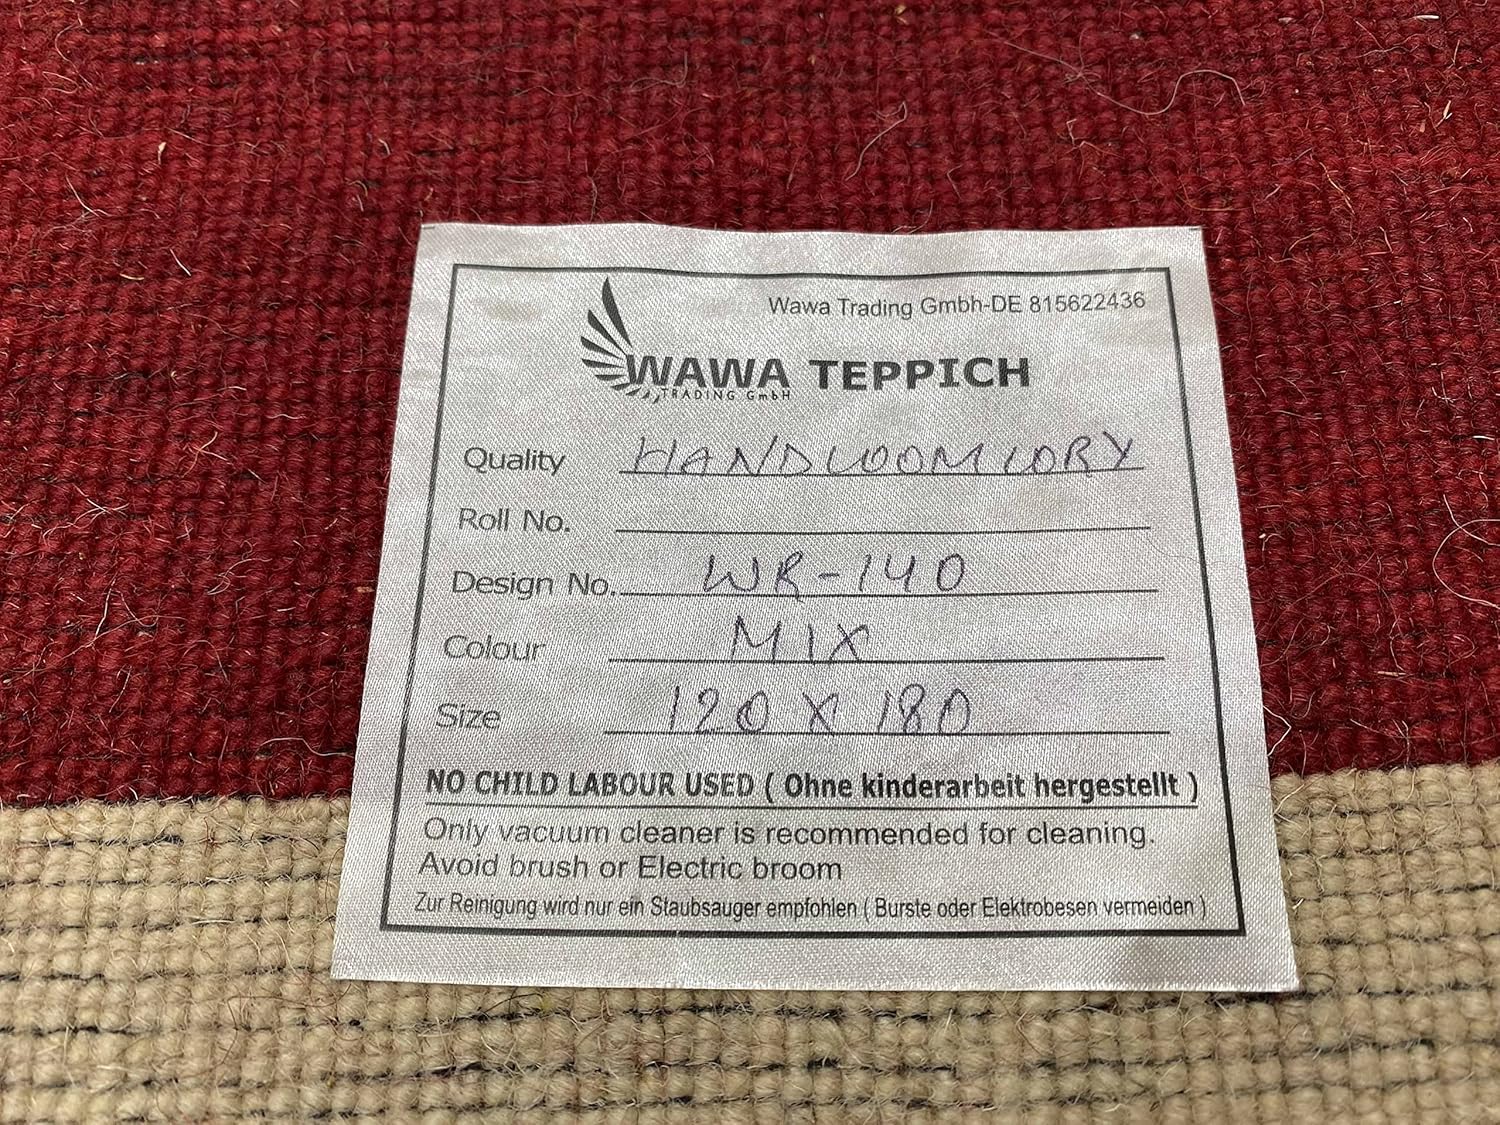 Wawa Trading Gmbh-DE 815622436
WAWA TEPPICH
TRADING GmbH
Quality HANDLOOM LORY
Roll No.
Design No. WR-140
Colour MIX
Size 120 X 180
NO CHILD LABOUR USED ( Ohne kinderarbeit hergestellt )
Only vacuum cleaner is recommended for cleaning.
Avoid brush or Electric broom
Zur Reinigung wird nur ein Staubsauger empfohlen ( Burste oder Elektrobesen vermeiden )